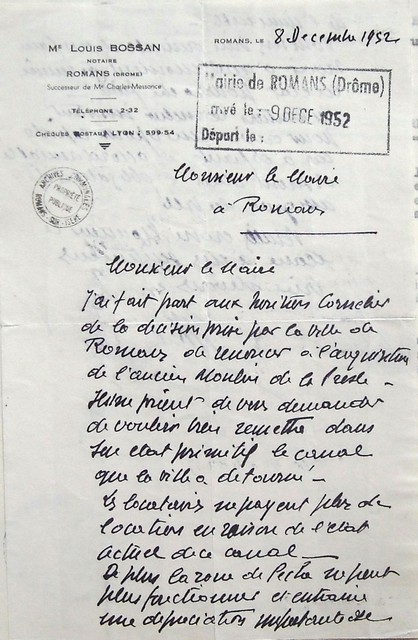 Me LOUIS BOSSAN
NOTAIRE
ROMANS (DROME)
Successeur de Me Charles-Messance
TÉLÉPHONE 2-32
CHÈQUES POSTAUX LYON : 599-54
ROMANS, LE 8 Décembre 1952
Mairie de ROMANS (Drôme)
rrivé le : 9 DECE 1952
Départ le :
ARCHIVES COMMUNALES
PROPRIÉTÉ
PUBLIQUE
Monsieur le Maire
à Romans
Monsieur le Maire
J'ai fait part aux héritiers Cornelier
de la décision prise par la ville de
Romans de renoncer à l'acquisition
de l'ancien Moulin de la Presle -
Ils me prient de vous demander
de vouloir bien remettre dans
son état primitif le canal
que la ville a détourné -
Les locataires ne payent plus de
location en raison de l'état
actuel de ce canal -
De plus la roue de pêche ne peut
plus fonctionner et entraine
une dépréciation importante de